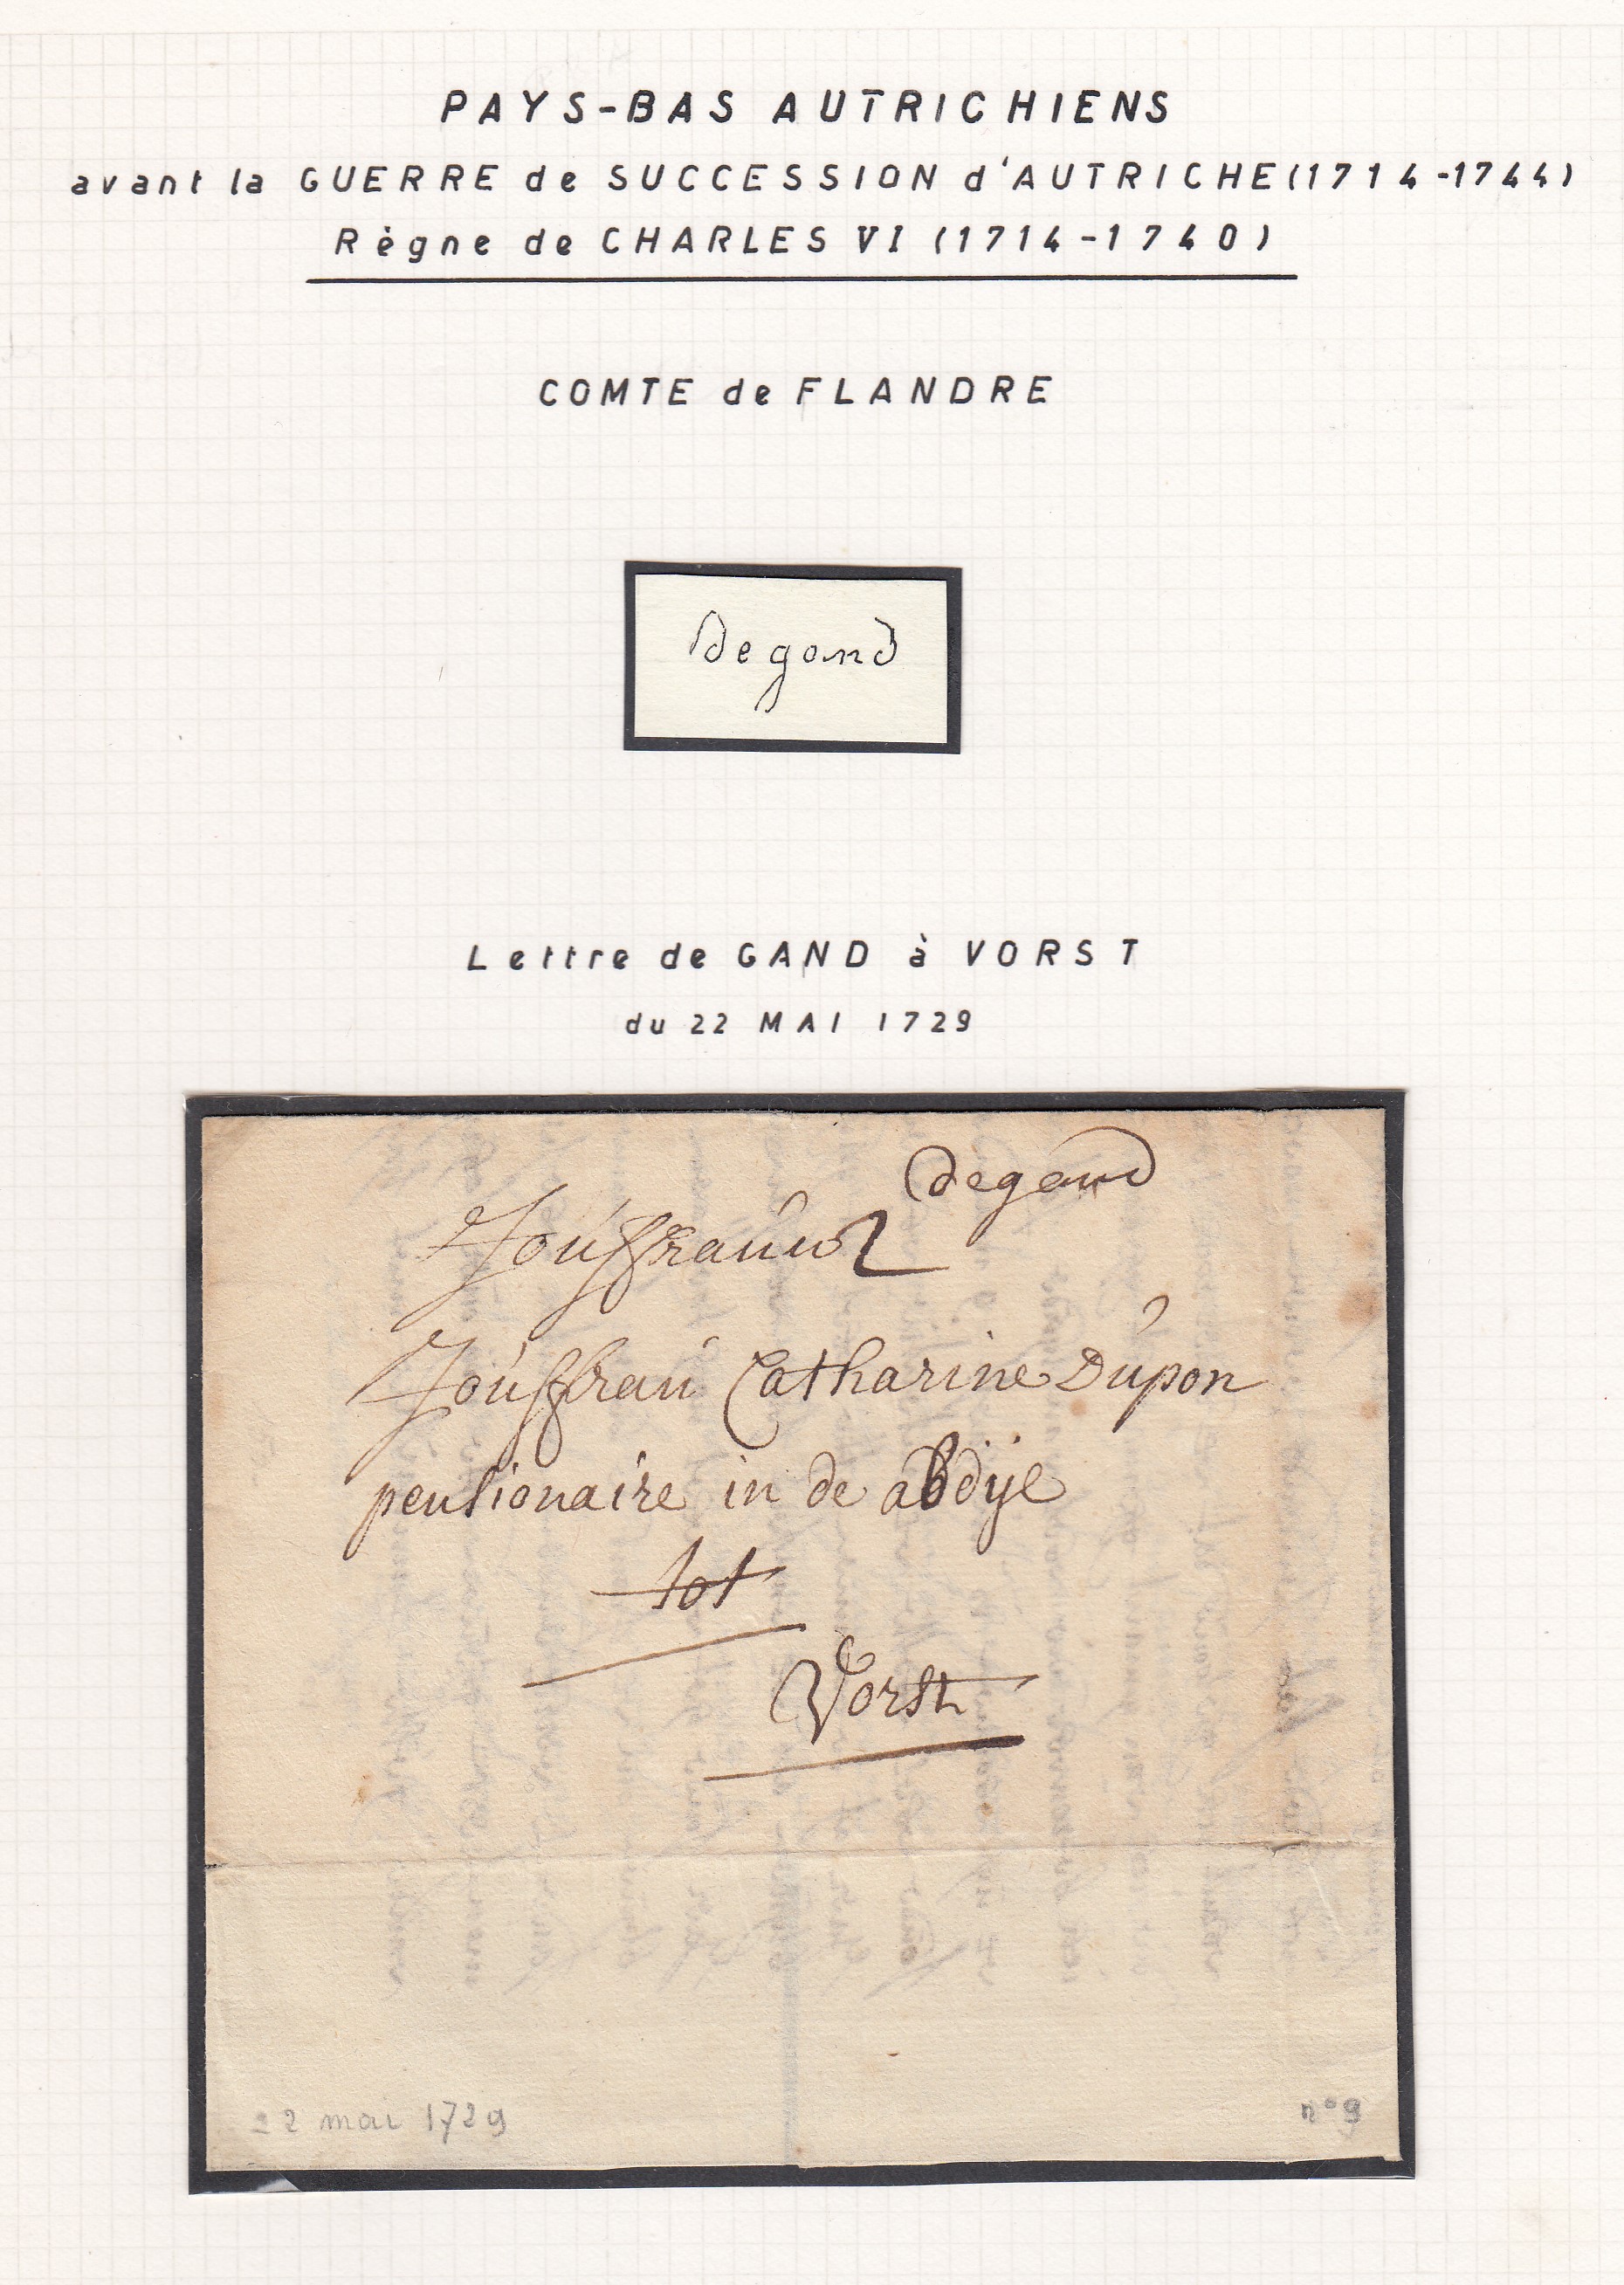 PAYS-BAS AUTRICHIENS
avant la GUERRE de SUCCESSION d'AUTRICHE (1714-1744)
Règne de CHARLES VI (1714-1740)
COMTE de FLANDRE
Degand
Lettre de GAND à VORST
du 22 MAI 1729
Degand
Jouffrauw
Jouffrau Catharine Dupon
pensionaire in de abdÿe
tot
Vorst
22 mai 1729
n° 9